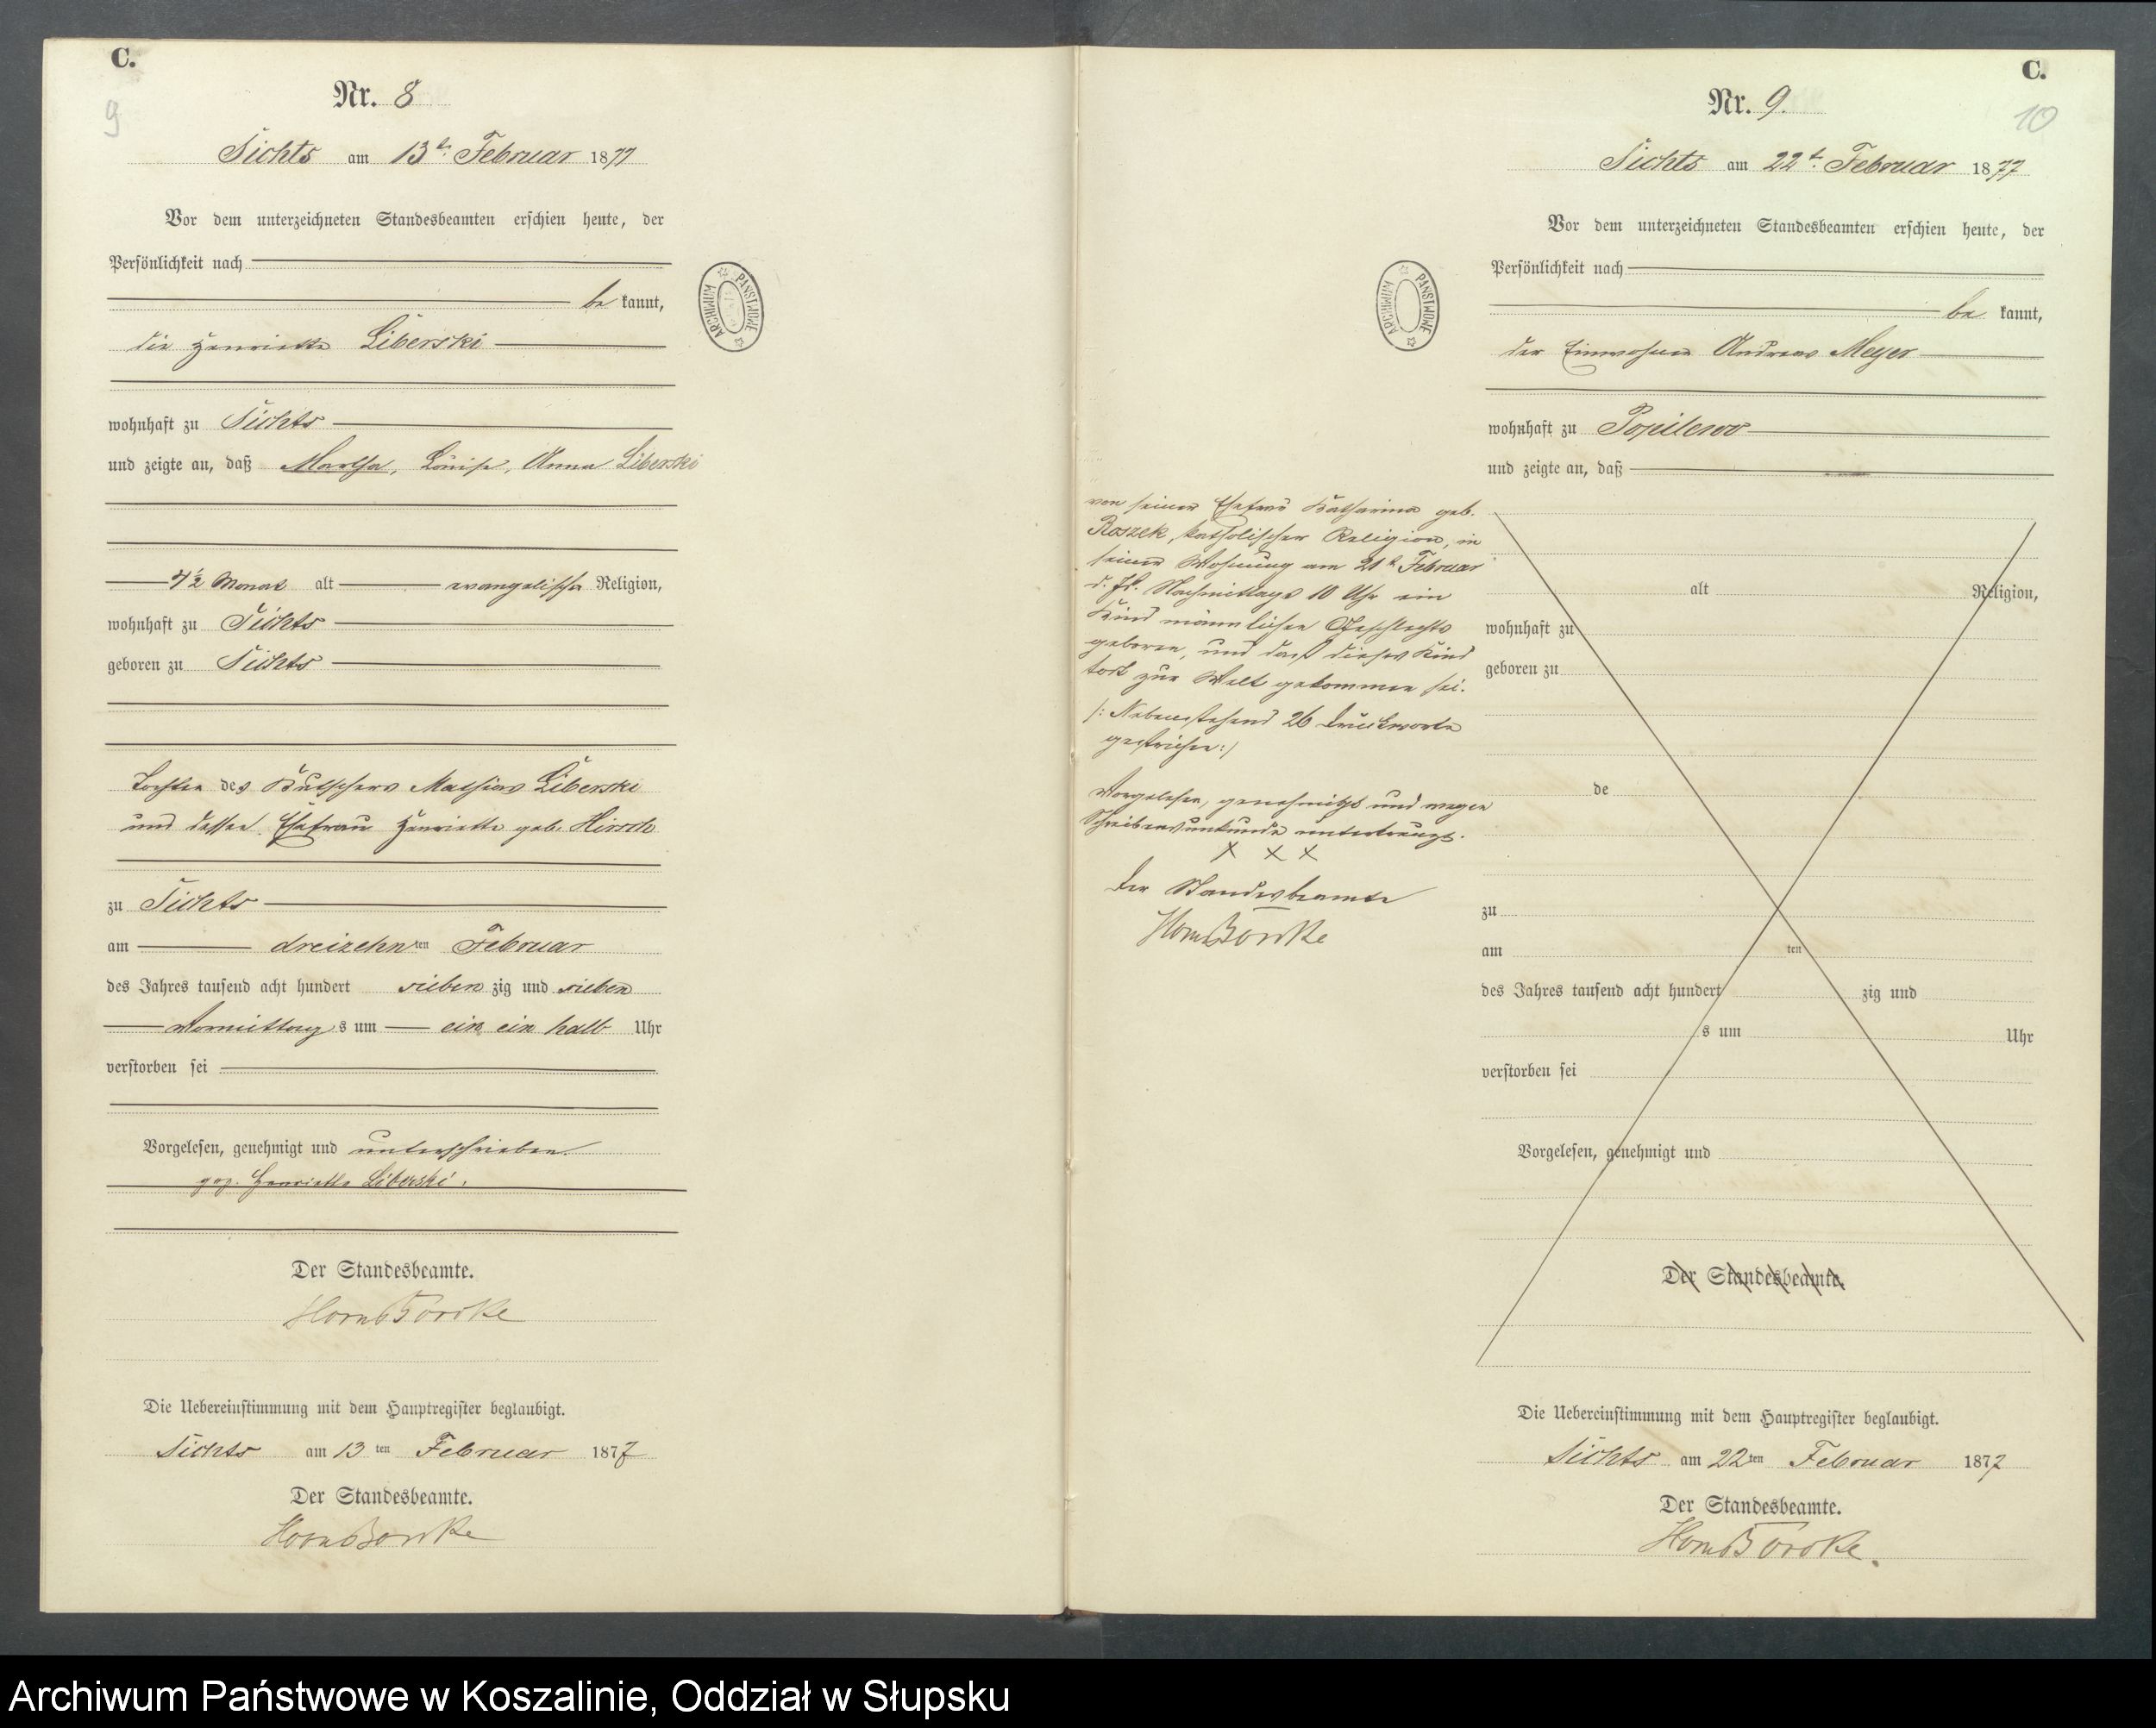 C.
9
Nr. 8
Tichts am 13t. Februar 1877
Vor dem unterzeichneten Standesbeamten erschien heute, der
Persönlichkeit nach
be kannt,
die Henriette Liberski
wohnhaft zu Tichts
und zeigte an, daß Martha, Louise, Anna Liberski
1/2 Monat alt evangelischer Religion,
wohnhaft zu Tichts
geboren zu Tichts
Tochter des Kutschers Mathias Liberski
und dessen Ehefrau Henriette geb. Hirsch
zu Tichts
am dreizehn ten Februar
des Jahres tausend acht hundert sieben zig und sieben
Vormittag s um ein ein halb Uhr
verstorben sei
Vorgelesen, genehmigt und unterschrieben.
gez. Henriette Liberski.
Der Standesbeamte.
Die Uebereinstimmung mit dem Hauptregister beglaubigt.
Tichts am 13 ten Februar 1877
Der Standesbeamte.
ARCHIWUM PAŃSTWOWE
C.
10
Nr. 9.
Tichts am 22t. Februar 1877
Vor dem unterzeichneten Standesbeamten erschien heute, der
Persönlichkeit nach
be kannt,
der Einwohner Andreas Meyer
wohnhaft zu Popilewo
und zeigte an, daß
ARCHIWUM PAŃSTWOWE
von seiner Ehefrau Katharina geb.
Roszek, katholischer Religion, in
seiner Wohnung am 21t Februar
d. Js. Nachmittags 10 Uhr ein
Kind männlichen Geschlechts
geboren, und daß dieses Kind
todt zur Welt gekommen sei.
/: Nebenstehend 26 Druckworte
gestrichen :/
Vorgelesen, genehmigt und wegen
Schreibensunkunde unterkreuzt.
X X X
Der Standesbeamte
alt Religion,
wohnhaft zu
geboren zu
de
zu
am ten
des Jahres tausend acht hundert zig und
s um Uhr
verstorben sei
Vorgelesen, genehmigt und
Der Standesbeamte.
Die Uebereinstimmung mit dem Hauptregister beglaubigt.
Tichts am 22 ten Februar 1877
Der Standesbeamte.
Archiwum Państwowe w Koszalinie, Oddział w Słupsku